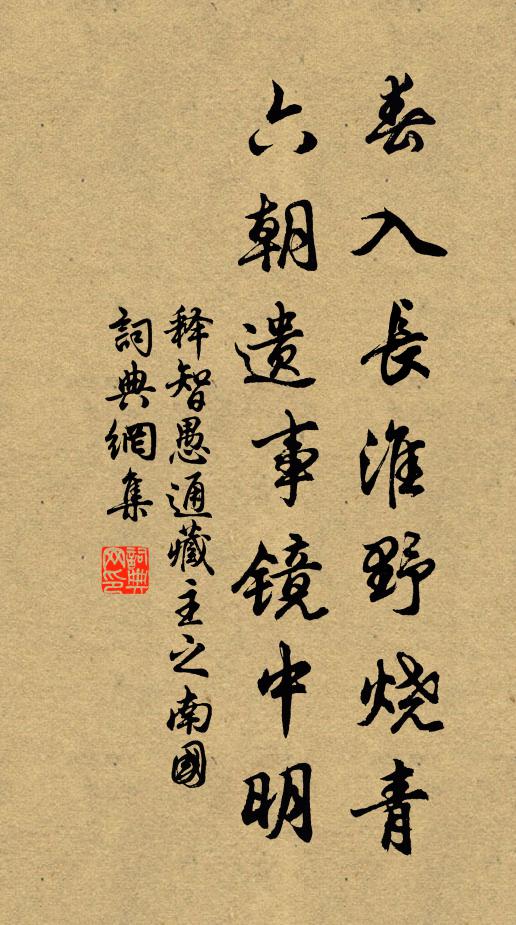 春入長淮野烧青
六朝遗事镜中明
释智愚通藏主之南國
詞典網集
詞典网印